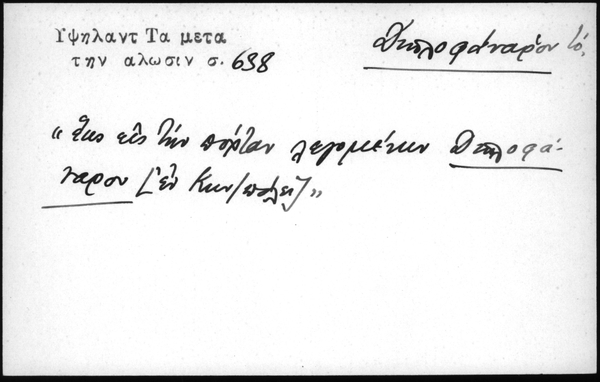 Υψηλαντ Τα μετα
την αλωσιν σ. 698
Διπλοφάναρον τό,
« ἕως εἰς τὴν πόρταν λεγομένην Διπλοφά-
ναρον [ἐν Κων/πόλει] »